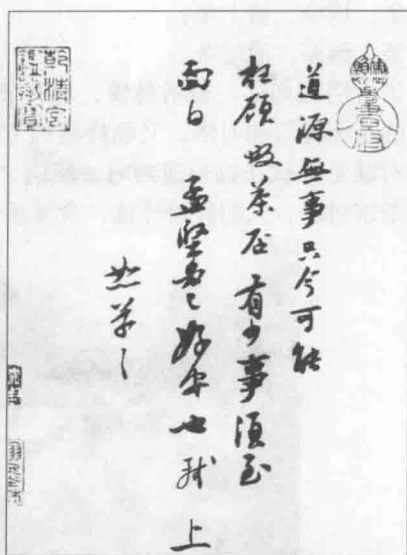 道源無事只今可能
枉顧啜茶否有少事須至
面白孟堅必已好安也軾上
恕草〻
乾清宮鑑藏寶